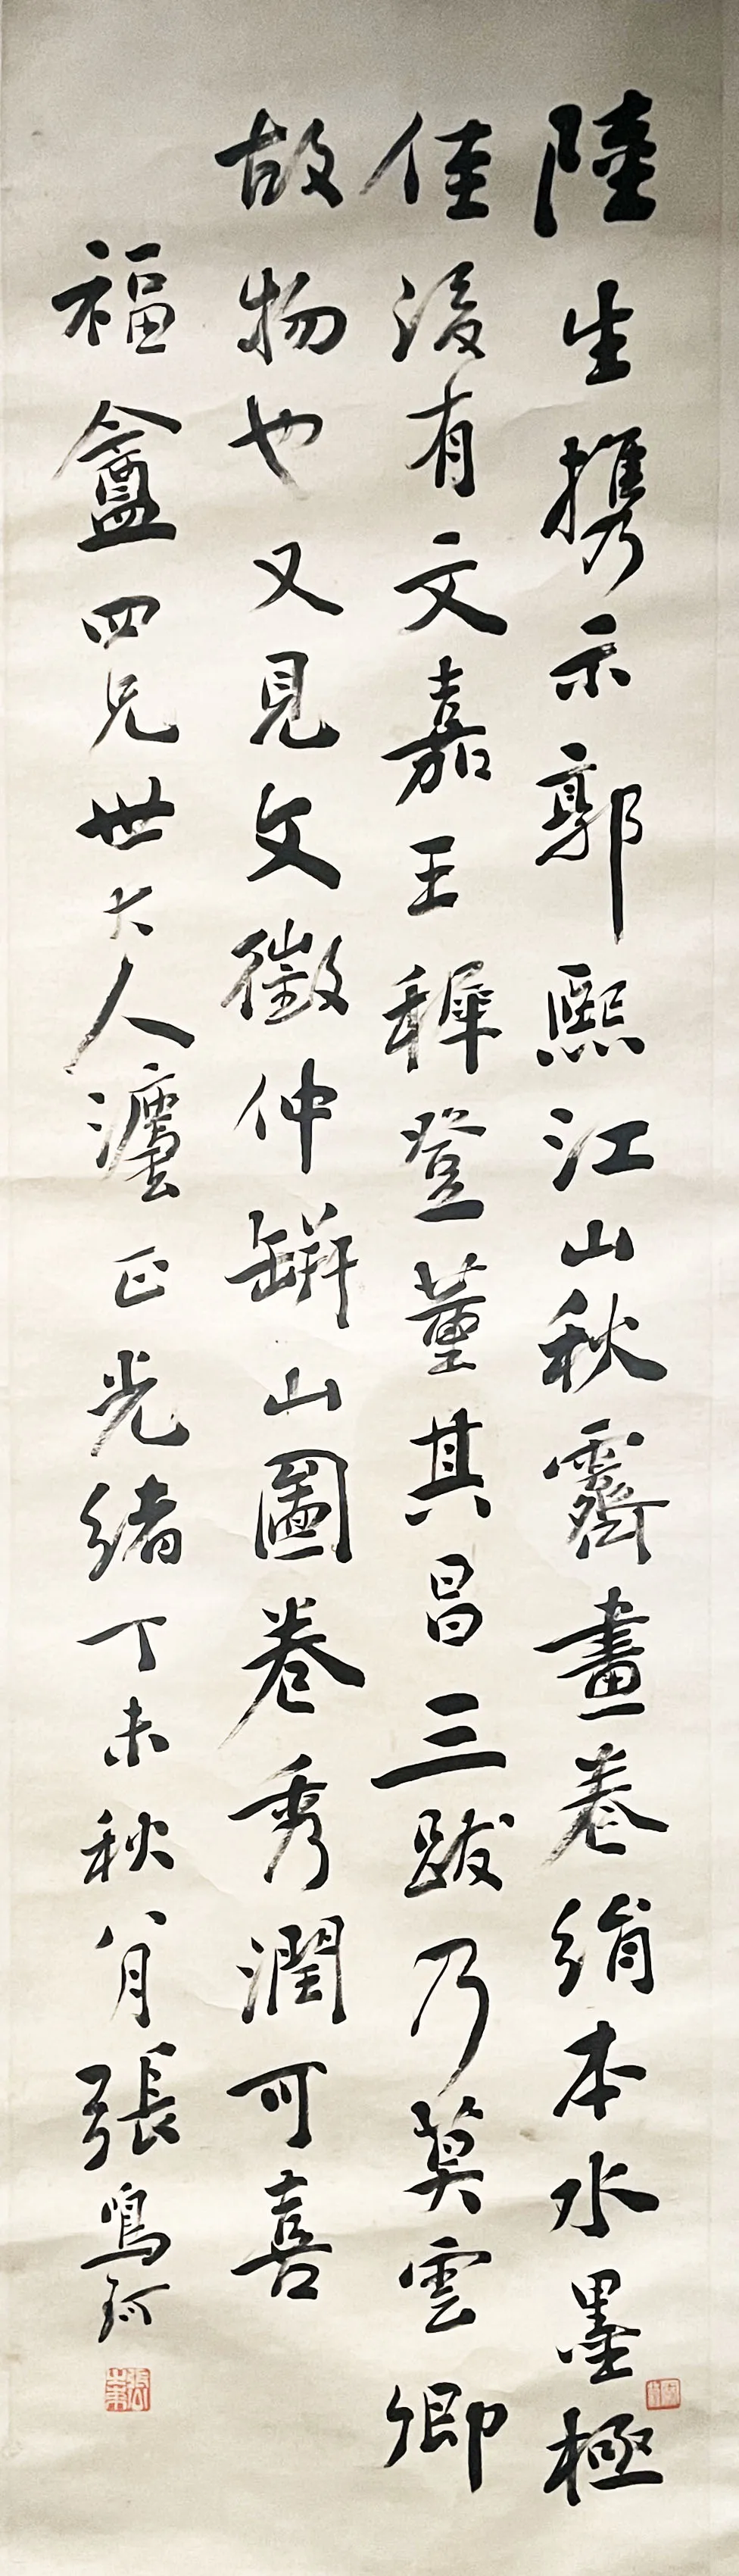 陸生携示郭熙江山秋霽畫卷絹本水墨極
佳後有文嘉王穉登董其昌三跋乃莫雲卿
故物也又見文徵仲缾山圖卷秀潤可喜
福盫四兄世大人正光緒丁未秋八月張鳴珂